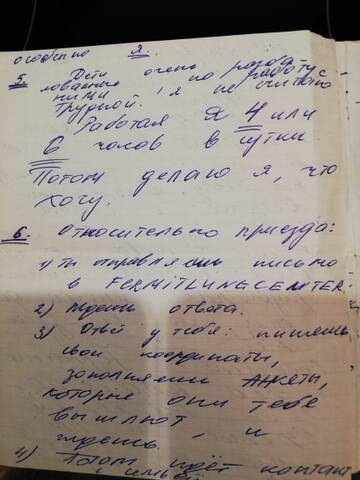 особенно я.
5. Дети очень разба-
лованные, но работу с
ними я не считаю
трудной.
Работая я 4 или
6 часов в сутки
Потом делаю я, что
хочу.
6. Относительно приезда:
1) Ты отправляешь письмо
в FERMITLUNGCENTER.
2) ждешь ответа.
3) Ответ у тебя: пишешь
свои координаты,
заполняешь АНКЕТЫ,
которые они тебе
вышлют, и
ждешь.
4) Потом идёт контакт
с семьёй